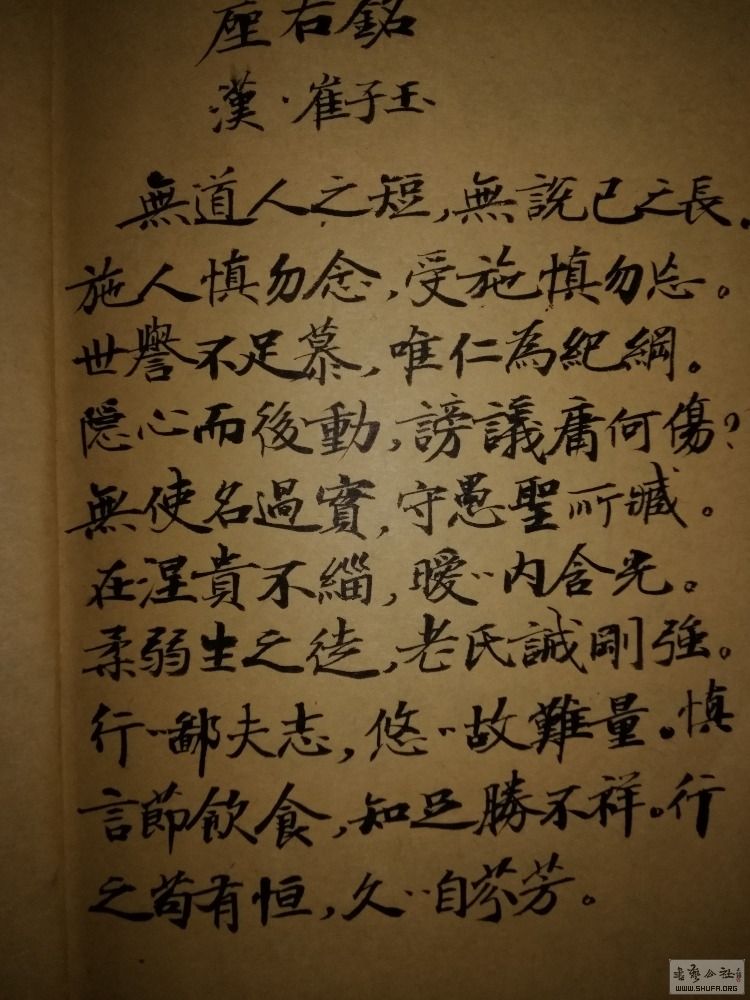 座右銘
漢·崔子玉
無道人之短,無說己之長,
施人慎勿念,受施慎勿忘。
世譽不足慕,唯仁為紀綱。
隱心而後動,謗議庸何傷?
無使名過實,守愚聖所臧。
在涅貴不緇,曖··內含光。
柔弱生之徒,老氏誡剛強。
行··鄙夫志,悠··故難量。慎
言節飲食,知足勝不祥。行
之苟有恒,久··自芬芳。
书法公社
WWW.SHUFA.ORG